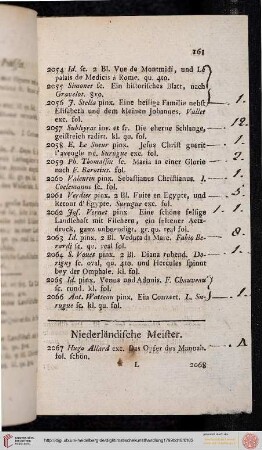 161
2054 Id. sc. 2 Bl. Vue de Montmidi, und Le
palais de Medicis à Rome. qu. 4to.
2055 Simonet sc. Ein historisches Blatt, nach
Gravelot. 8vo.
2056 J. Stella pinx. Eine heilige Familie nebst
Elisabeth und dem kleinen Johannes. Vallet
exc. fol.
1.
2057 Subleyras inv. et sc. Die eherne Schlange,
geistreich radirt. kl. qu. fol.
12.
2058 E. Le Sueur pinx. Jesus Christ guerit
l'aveugle né. Surugue exc. fol.
1.
2059 Ph. Thomassin sc. Maria in einer Glorie
nach F. Barotius. fol.
2.
2060 Valentin pinx. Sebastianus Christianus. J.
Coelemanns sc. fol.
2061 Verdier pinx. 2 Bl. Fuite en Egypte, und
Retour d'Egypte. Surugue exc. fol.
1.
2062 Jos. Vernet pinx. Eine schöne felsige
Landschaft mit Fischern, ein seltener Aetz-
druck, ganz unberedigt. gr. qu. real fol.
2063 Id. pinx. 2 Bl. Veduta di Mare. Fabio Be-
rardi sc. qu. real fol.
8.
2064 S. Vouet pinx. 2 Bl. Diana ruhend. Do-
rigny sc. oval. qu. 4to. und Hercules spinnt
bey der Omphale. kl. fol.
1.
2065 Id. pinx. Venus und Adonis. F. Chauveau
sc. rund. kl. fol.
1.
2066 Ant. Watteau pinx. Ein Concert. L. Su-
rugue sc. kl. qu. fol.
1.
Niederländische Meister.
2067 Hugo Allard exc. Das Opfer des Manoah.
fol. schön.
1.
L
2068